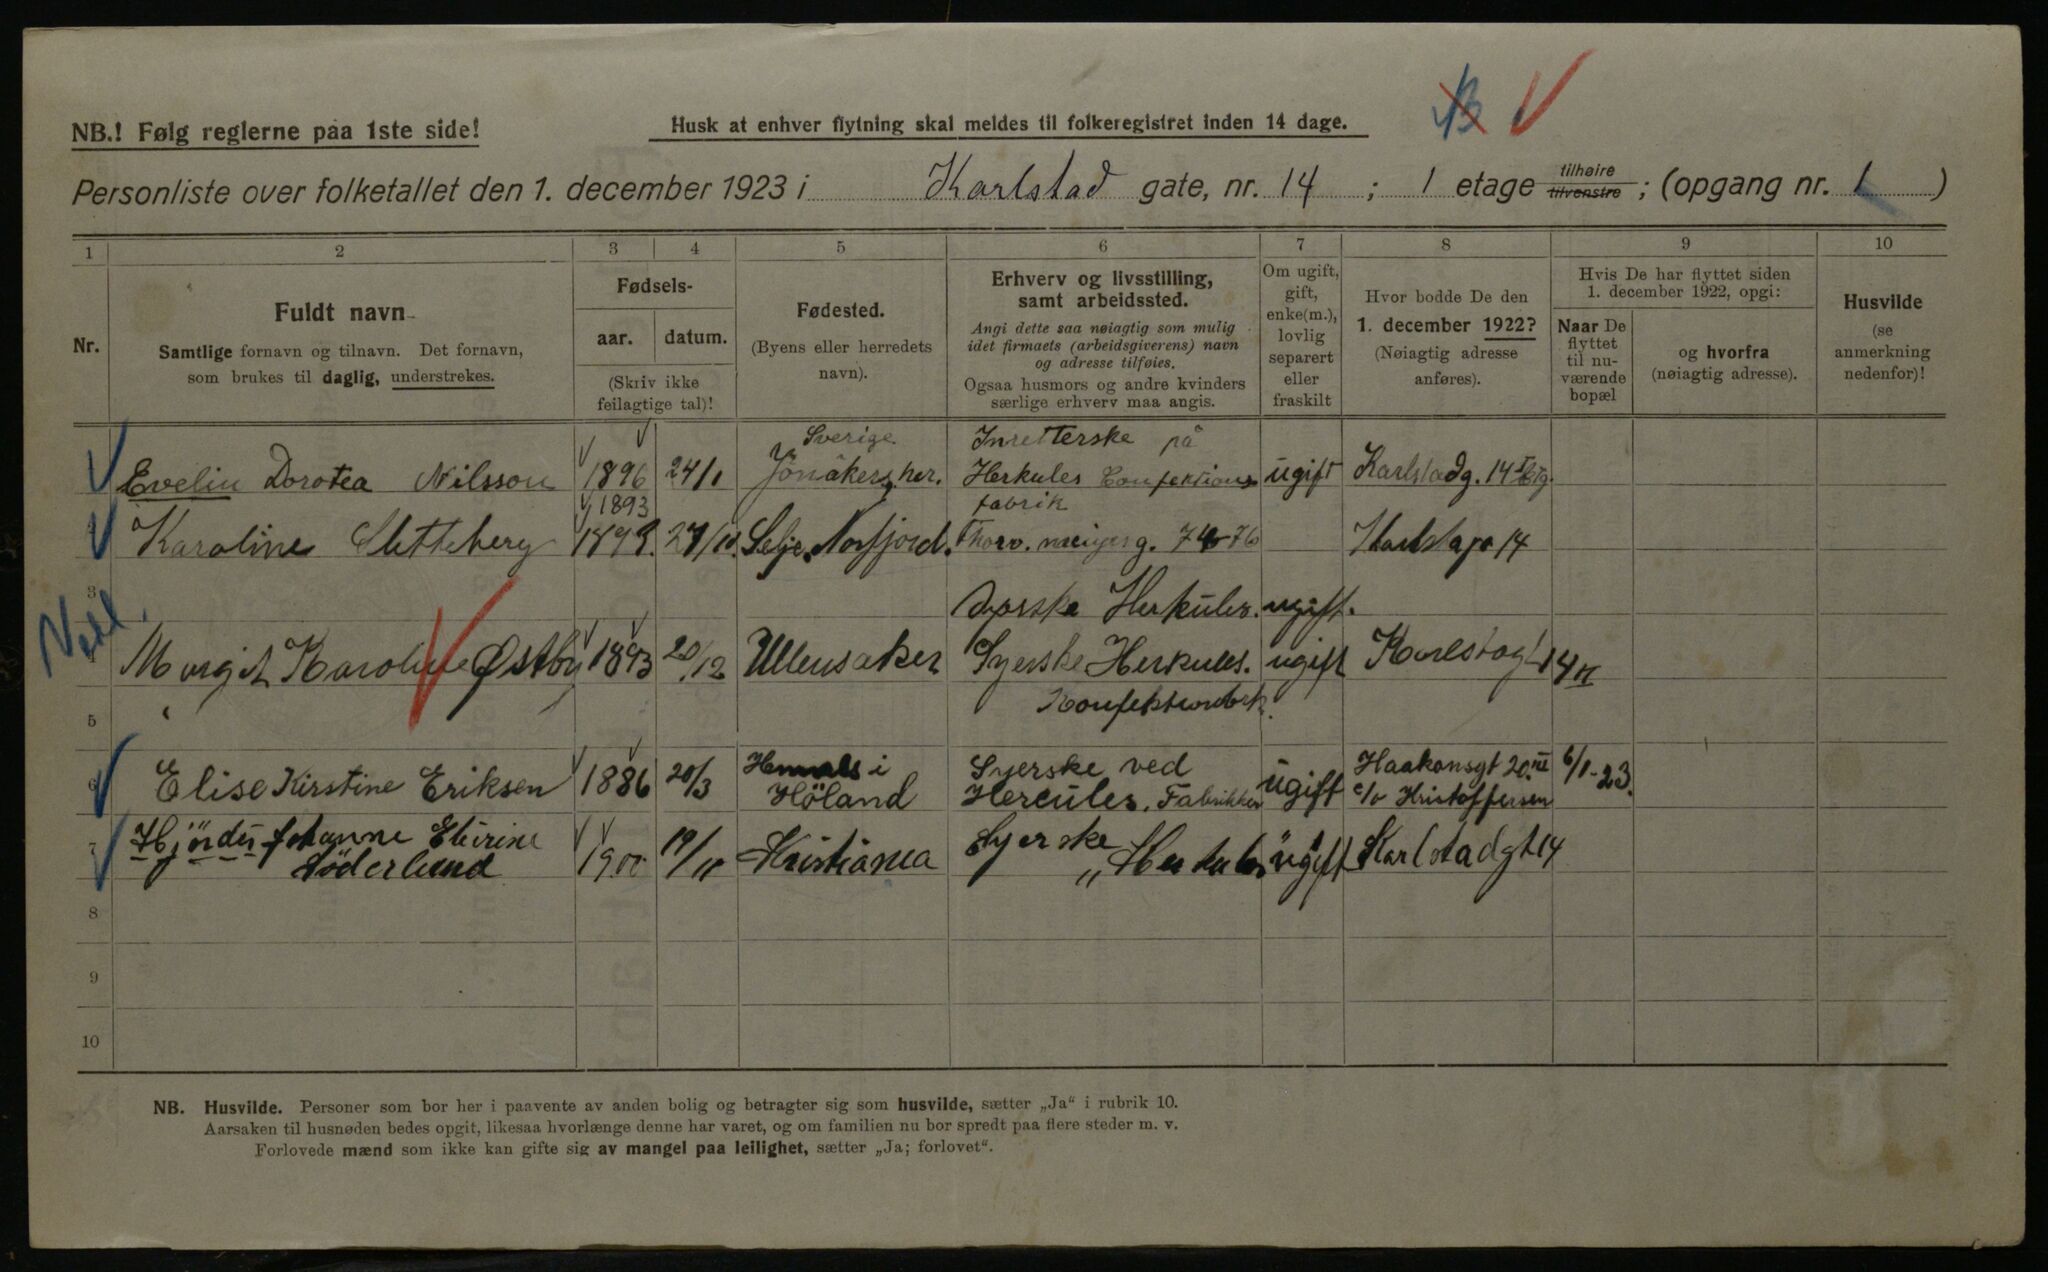 NB.! Følg reglerne paa 1ste side!
Husk at enhver flytning skal meldes til folkeregistret inden 14 dage.
Personliste over folketallet den 1. december 1923 i Karlstad gate, nr. 14 ; 1 etage tilhøire tilvenstre ; (opgang nr. 1 )
1 2 3 4 5 6 7 8 9 10
Nr.
Fuldt navn
Samtlige fornavn og tilnavn. Det fornavn,
som brukes til daglig, understrekes.
Fødsels-
aar. datum.
(Skriv ikke
feilagtige tal)!
Fødested.
(Byens eller herredets
navn).
Erhverv og livsstilling,
samt arbeidssted.
Angi dette saa nøiagtig som mulig
idet firmaets (arbeidsgiverens) navn
og adresse tilføies.
Ogsaa husmors og andre kvinders
særlige erhverv maa angis.
Om ugift,
gift,
enke(m.),
lovlig
separert
eller
fraskilt
Hvor bodde De den
1. december 1922?
(Nøiagtig adresse
anføres).
Hvis De har flyttet siden
1. december 1922, opgi:
Naar De
flyttet
til nu-
værende
bopæl
og hvorfra
(nøiagtig adresse).
Husvilde
(se
anmerkning
nedenfor)!
Sverige. Inretterske på
Evelin Dorotea Nilsson 1896 24/1 Jönåkers her. Herkules Confektions ugift Karlstadg. 14 I Etg.
1893 fabrik
Karoline Sletteberg 1893. 27/10. Selje, Norfjord. Thorv. meiyerg. 74-76 14
3 Syerske Herkules. ugift.
4 Margit Karoline Østby 1893 20/12 Ullensaker Syerske Herkules. ugift Karlstagt 14 II
5
6 Elise Kirstine Eriksen 1886 20/3 Hemnæs i Höland Syerske ved Hercules. Fabrikker ugift Haakonsgt 20. III c/o Kristoffersen 6/1-23.
7 Hjördis Johanne Söderlund 1900 19/11 Kristiania Syerske „Herkules" ugift Karlstadgt 14
8
9
10
NB. Husvilde. Personer som bor her i paavente av anden bolig og betragter sig som husvilde, sætter „Ja" i rubrik 10.
Aarsaken til husnøden bedes opgit, likesaa hvorlænge denne har varet, og om familien nu bor spredt paa flere steder m. v.
Forlovede mænd som ikke kan gifte sig av mangel paa leilighet, sætter „Ja; forlovet".